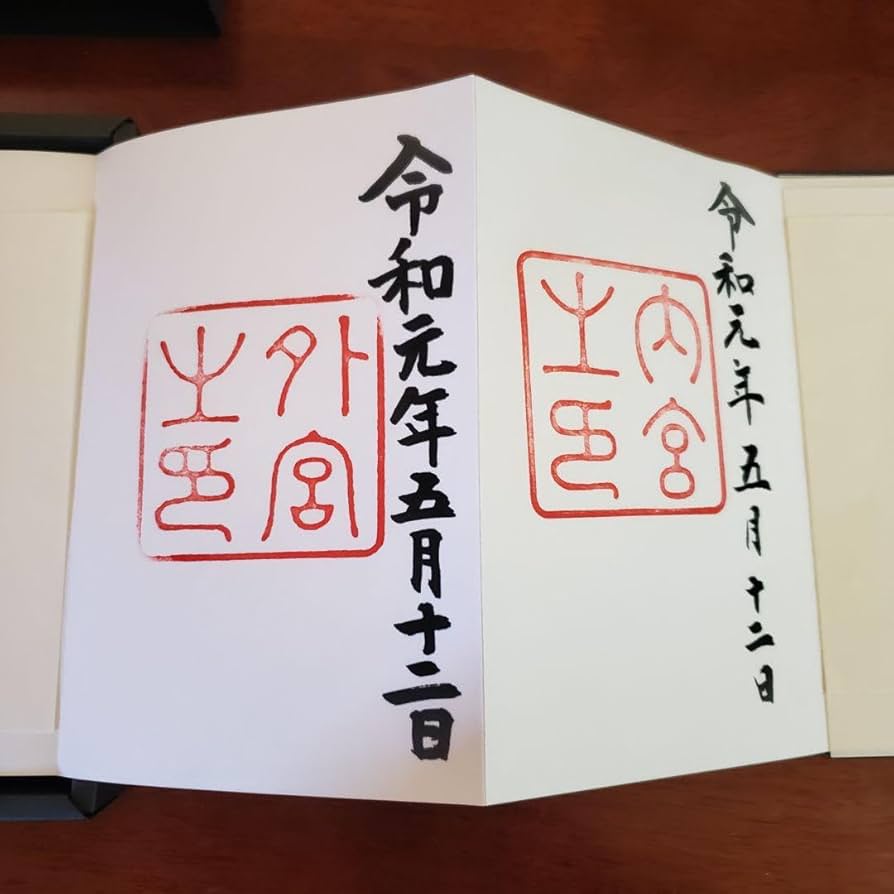 令和元年五月十二日
内宮
之印
令和元年五月十二日
外宮
之印